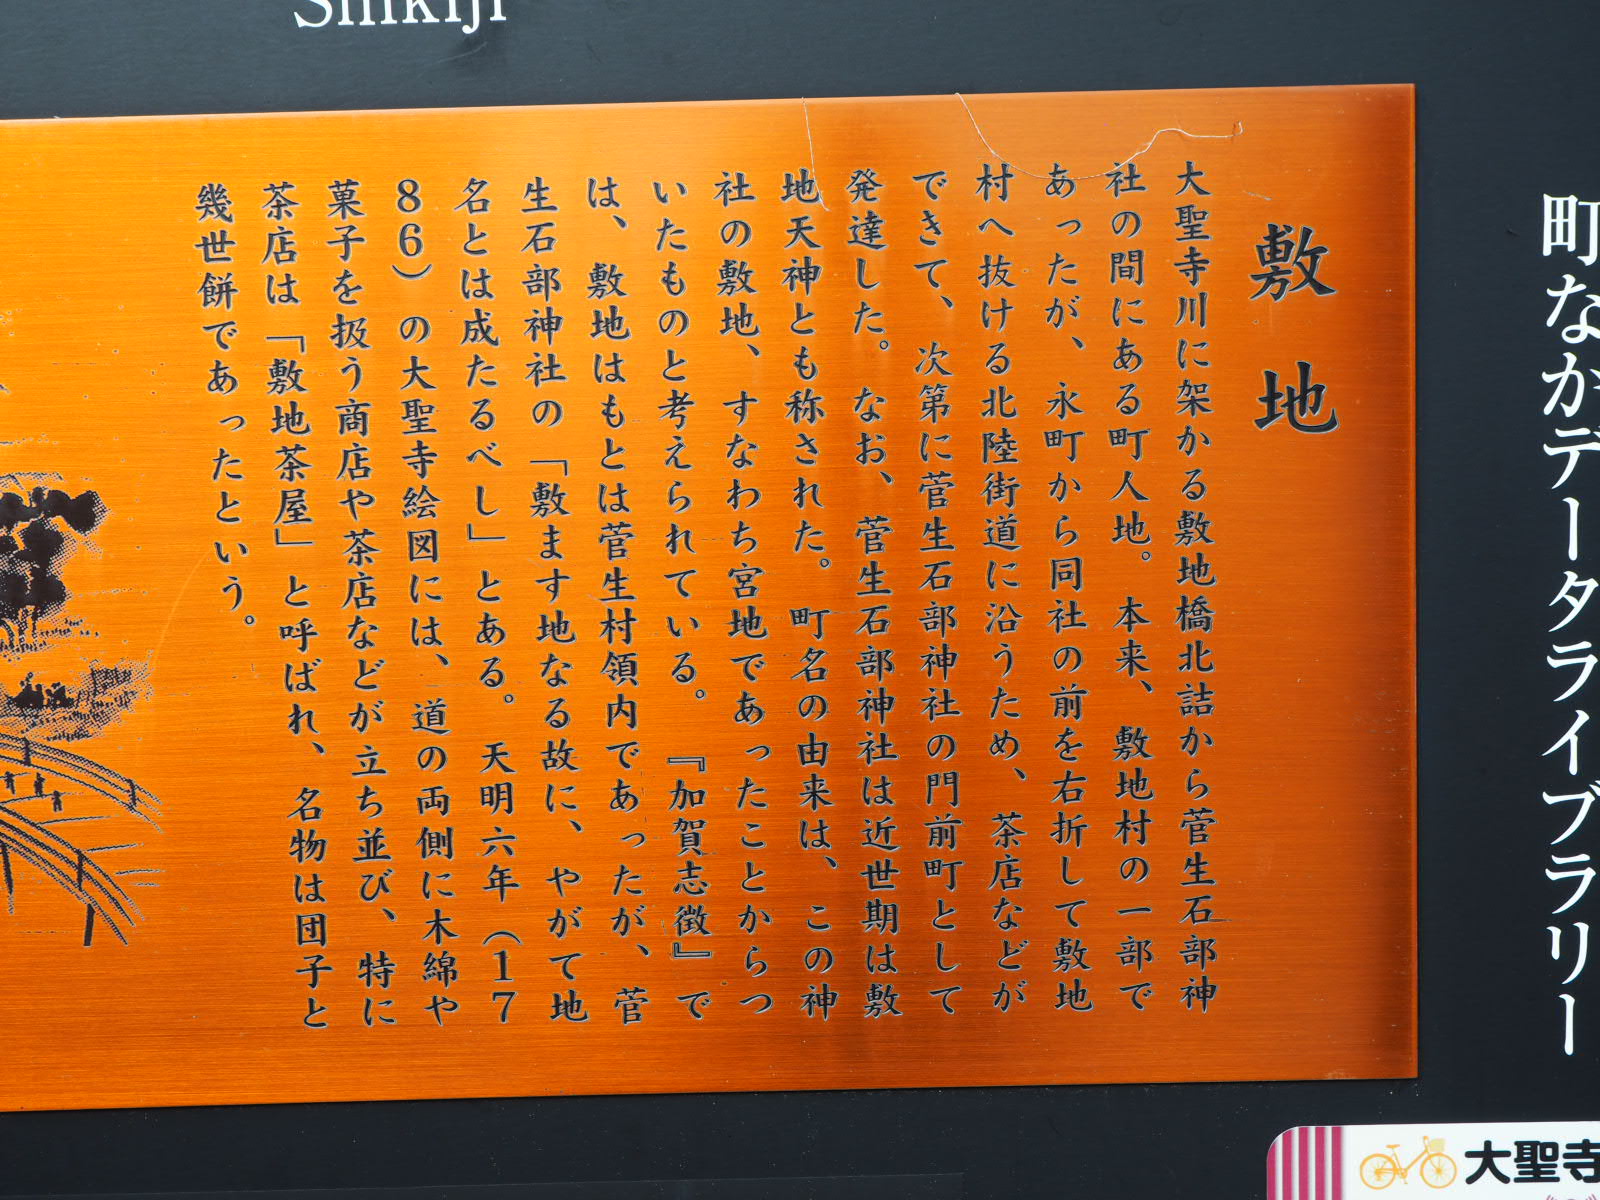 Shikiji
敷地
大聖寺川に架かる敷地橋北詰から菅生石部神
社の間にある町人地。本来、敷地村の一部で
あったが、永町から同社の前を右折して敷地
村へ抜ける北陸街道に沿うため、茶店などが
できて、次第に菅生石部神社の門前町として
発達した。なお、菅生石部神社は近世期は敷
地天神とも称された。町名の由来は、この神
社の敷地、すなわち宮地であったことからつ
いたものと考えられている。『加賀志徴』で
は、敷地はもとは菅生村領内であったが、菅
生石部神社の「敷ます地なる故に、やがて地
名とは成たるべし」とある。天明六年(17
86)の大聖寺絵図には、道の両側に木綿や
菓子を扱う商店や茶店などが立ち並び、特に
茶店は「敷地茶屋」と呼ばれ、名物は団子と
幾世餅であったという。
町なかデータライブラリー
大聖寺